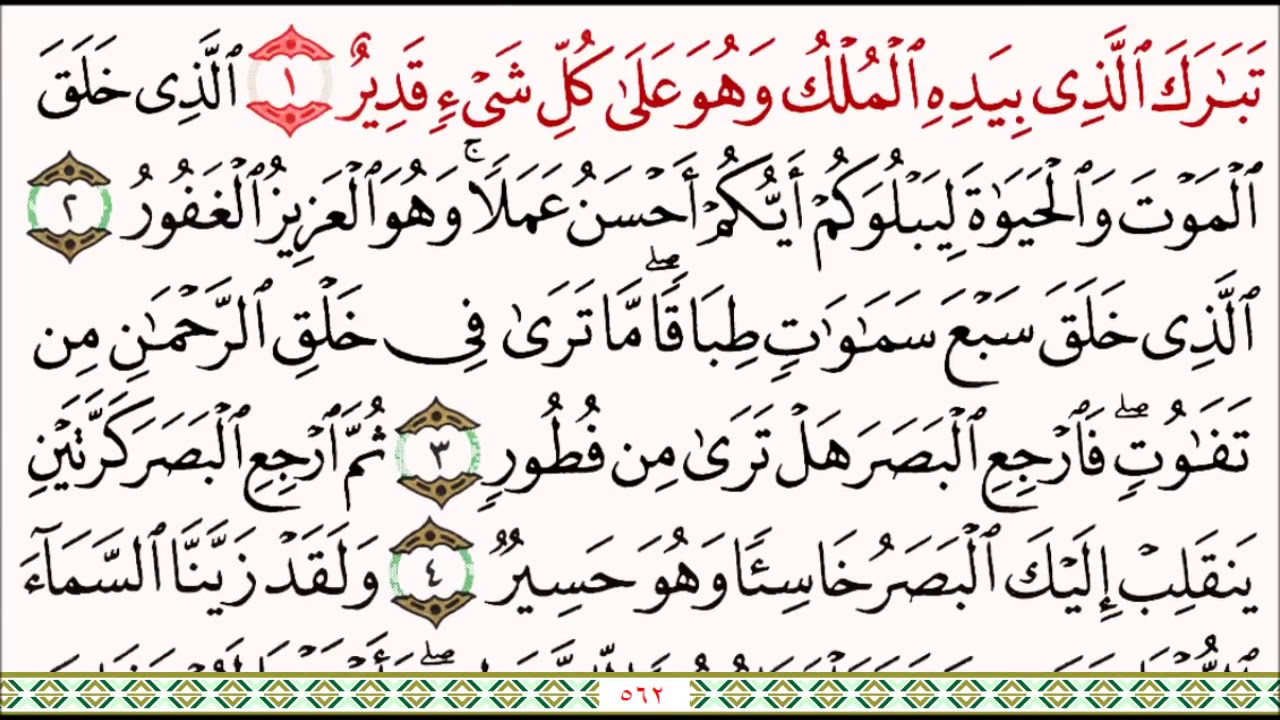 تَبَٰرَكَ ٱلَّذِى بِيَدِهِ ٱلْمُلْكُ وَهُوَ عَلَىٰ كُلِّ شَىْءٍ قَدِيرٌ ١ ٱلَّذِى خَلَقَ
ٱلْمَوْتَ وَٱلْحَيَوٰةَ لِيَبْلُوَكُمْ أَيُّكُمْ أَحْسَنُ عَمَلًا ۚ وَهُوَ ٱلْعَزِيزُ ٱلْغَفُورُ ٢
ٱلَّذِى خَلَقَ سَبْعَ سَمَٰوَٰتٍ طِبَاقًا ۖ مَّا تَرَىٰ فِى خَلْقِ ٱلرَّحْمَٰنِ مِن
تَفَٰوُتٍ ۖ فَٱرْجِعِ ٱلْبَصَرَ هَلْ تَرَىٰ مِن فُطُورٍ ٣ ثُمَّ ٱرْجِعِ ٱلْبَصَرَ كَرَّتَيْنِ
يَنقَلِبْ إِلَيْكَ ٱلْبَصَرُ خَاسِئًا وَهُوَ حَسِيرٌ ٤ وَلَقَدْ زَيَّنَّا ٱلسَّمَآءَ
٥٦٢